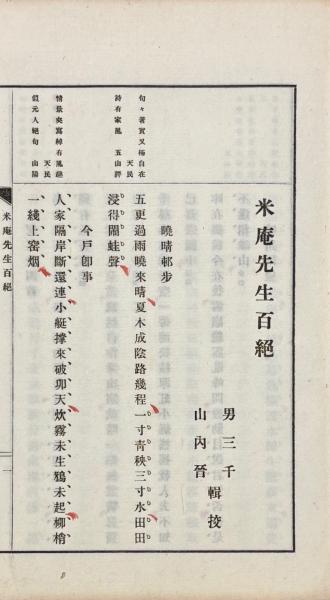 米庵先生百絕
男三千
山內晉
輯挍
句々著實又極自在
天民
詩有家風 五山評
曉晴邨步
五更過雨曉來晴夏木成陰路幾程一寸青秧三寸水田田
浸得閙蛙聲
情景夾寫綽有風趣
天民
似元人絕句 山陽
今戶卽事
人家隔岸斷還連小艇撐來破卯天炊霧未生鴉未起柳梢
一綫上窑烟
米庵先生百絕
一